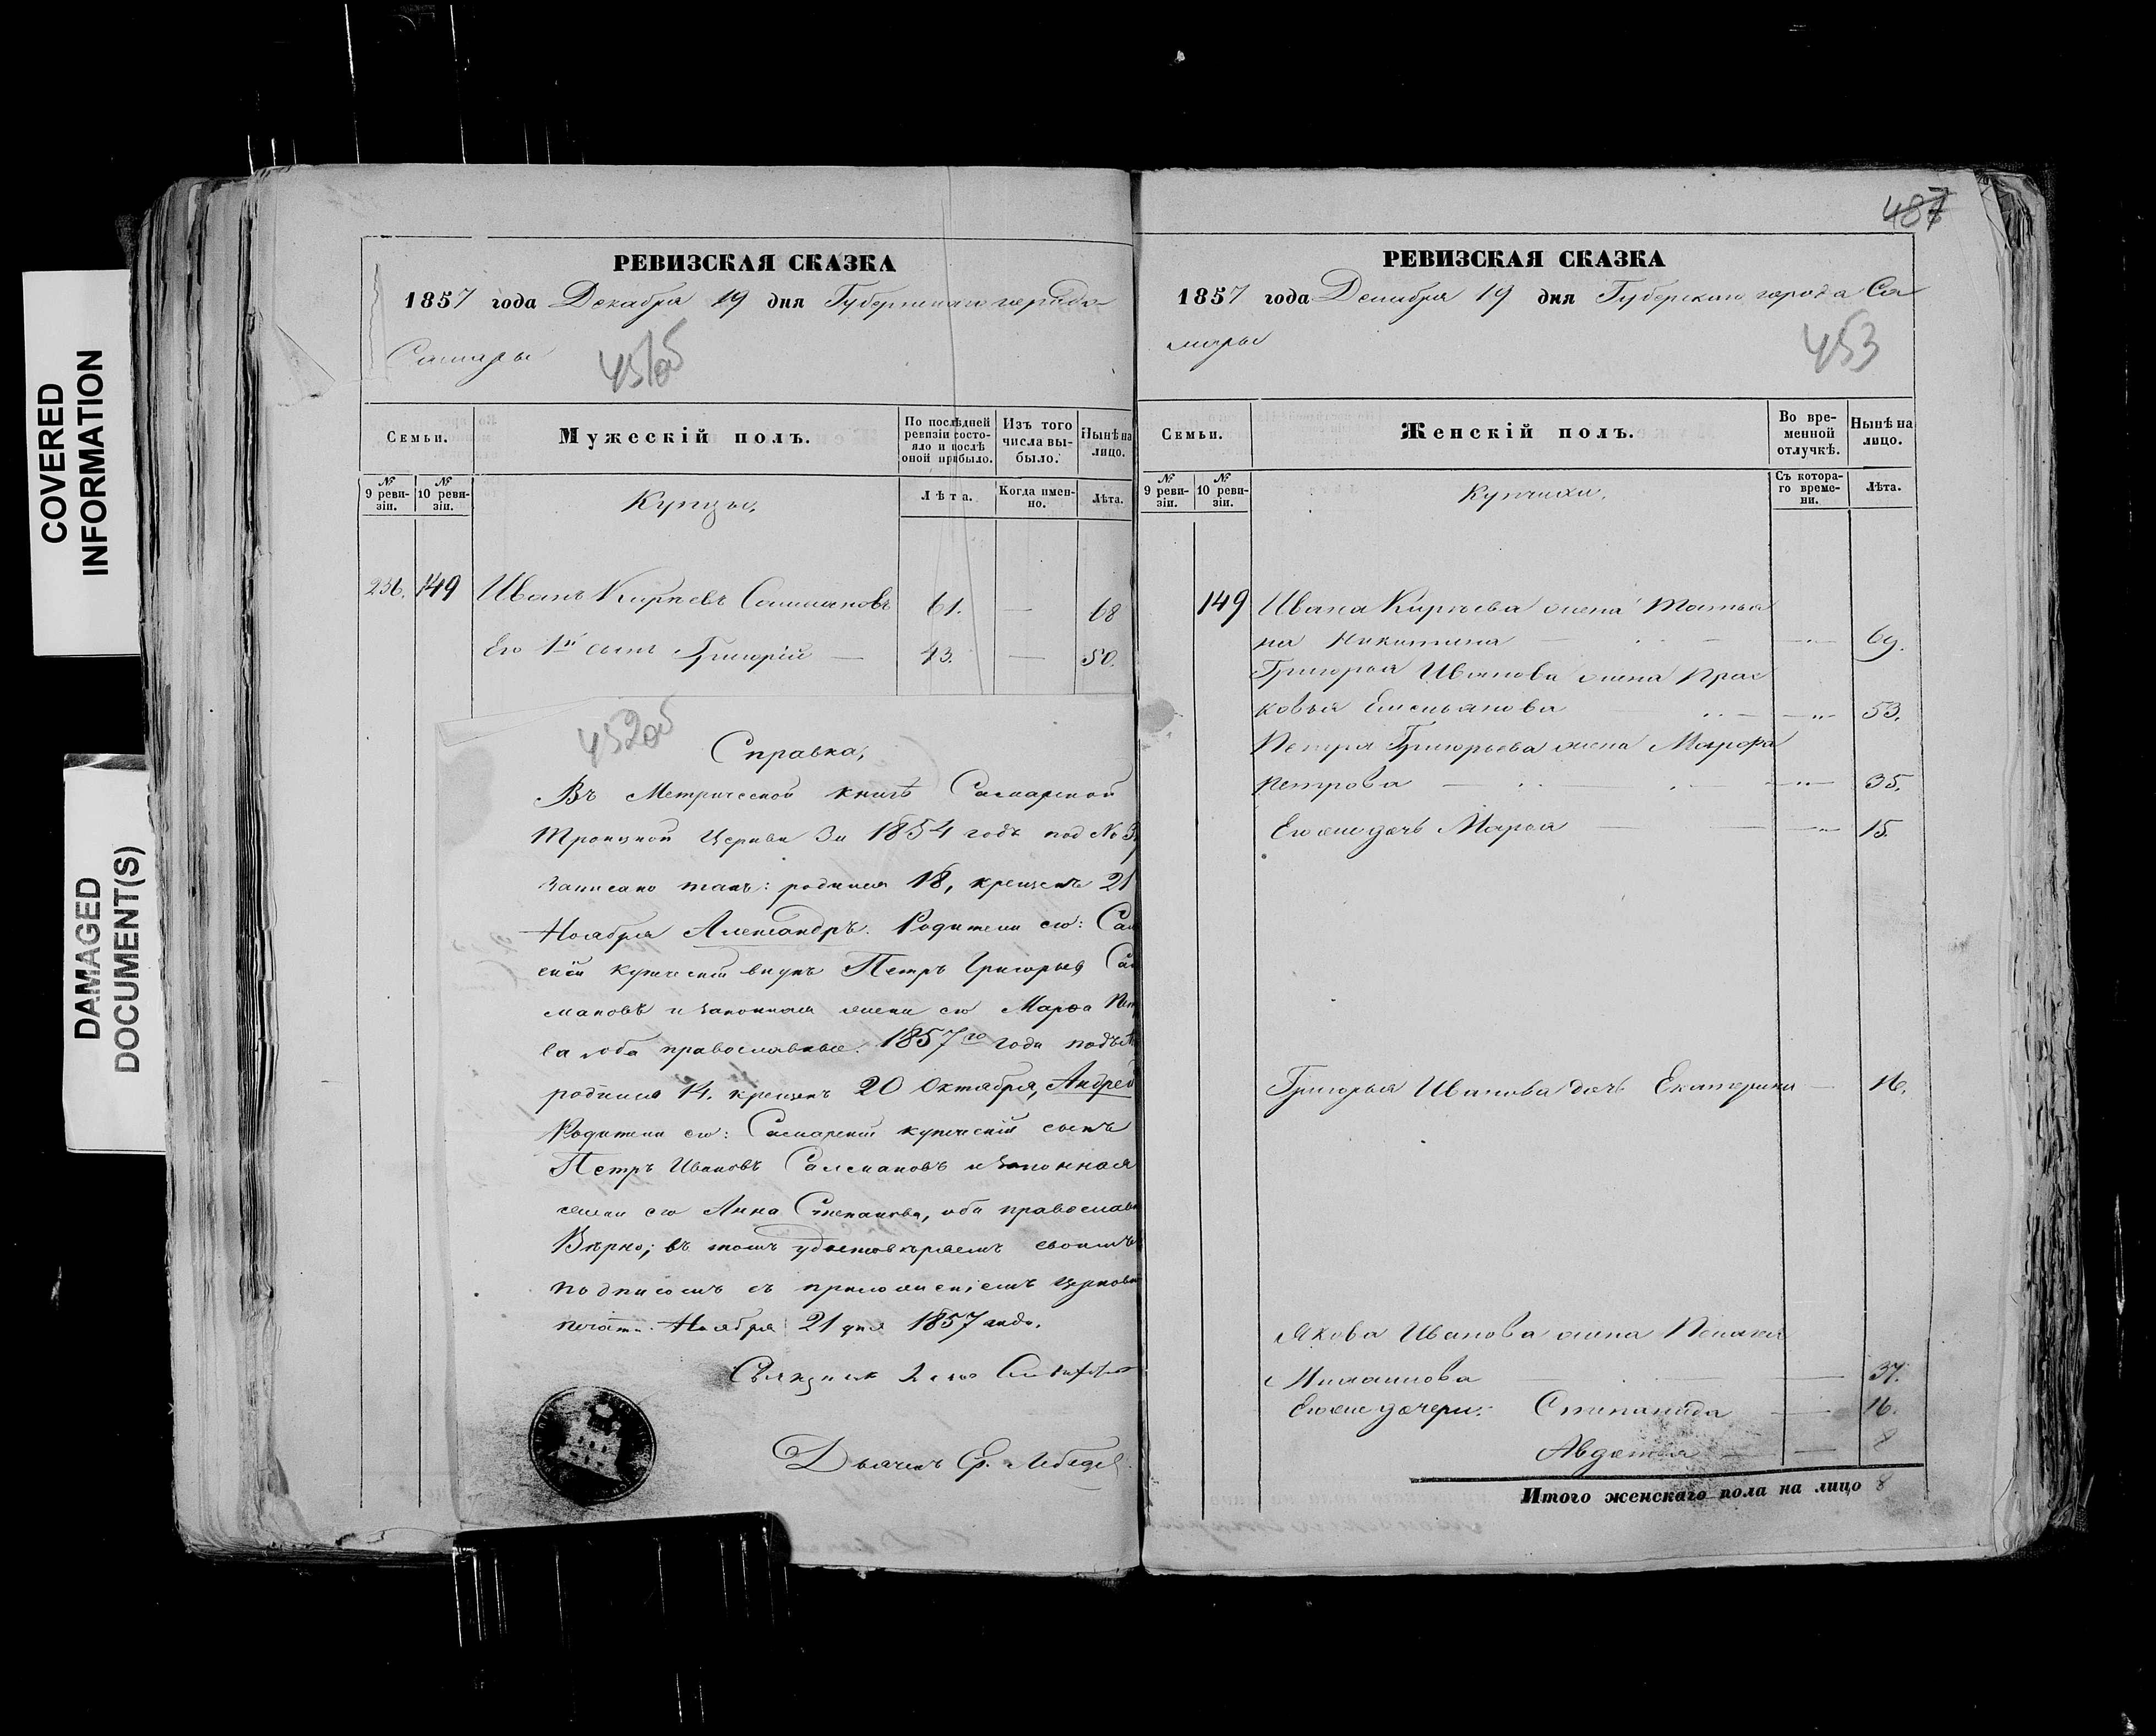 COVERED
INFORMATION
DAMAGED
DOCUMENT(S)
РЕВИЗСКАЯ СКАЗКА
1857 года Декабря 19 дня Губернскаго города
Самары
451об
Семьи.
Мужескій полъ.
По послѣдней ревизіи состояло и послѣ оной прибыло.
Изъ того числа выбыло.
Нынѣ на лицо.
№ 9 ревизіи.
№ 10 ревизіи.
Купцы.
Лѣта.
Когда именно.
Лѣта.
236. 149 Иванъ Киріевъ Салмановъ 61. — 68
Его 1й сынъ Григорій — 43. — 50.
452об
Справка,
Въ Метрической книгѣ Самарской
Троицкой Церкви За 1854 годъ под №
Записано такъ: родился 18, крещенъ 21
Ноября Александръ. Родители его: Сам
скій купеческій внукъ Петръ Григорьев Сал
мановъ и законная жена его Марѳа Пет
ва оба православные. 1857го года подъ №
родился 14. крещенъ 20 Октября, Андрей
Родители его: Самарскій купеческій сынъ
Петръ Ивановъ Салмановъ и законная
жена его Анна Степанова, оба православ
Вѣрно; въ томъ удостовѣряемъ своимъ
подписомъ съ приложеніемъ церковн
печати. Ноября 21 дня 1857 года.
Священник
Дьячекъ Ѳ. Лебедев.
487
РЕВИЗСКАЯ СКАЗКА
1857 года Декабря 19 дня Губернскаго города Са
мары
453
Семьи.
Женскій полъ.
Во временной отлучкѣ.
Нынѣ на лицо.
№ 9 ревизіи.
№ 10 ревизіи.
Купчихи.
Съ котораго времени.
Лѣта.
149 Ивана Киріева жена Татья
на Никитина — 69.
Григорья Иванова жена Прас
ковья Емельянова — 53.
Петра Григорьева жена Марфа
Петрова — 35.
Его же дочь Марья — 15.
Григорья Иванова дочь Екатерина — 16.
Якова Иванова жена Пелагея
37.
Его же дочери: Степанида — 16.
Авдотья — 8
Итого женскаго пола на лицо 8